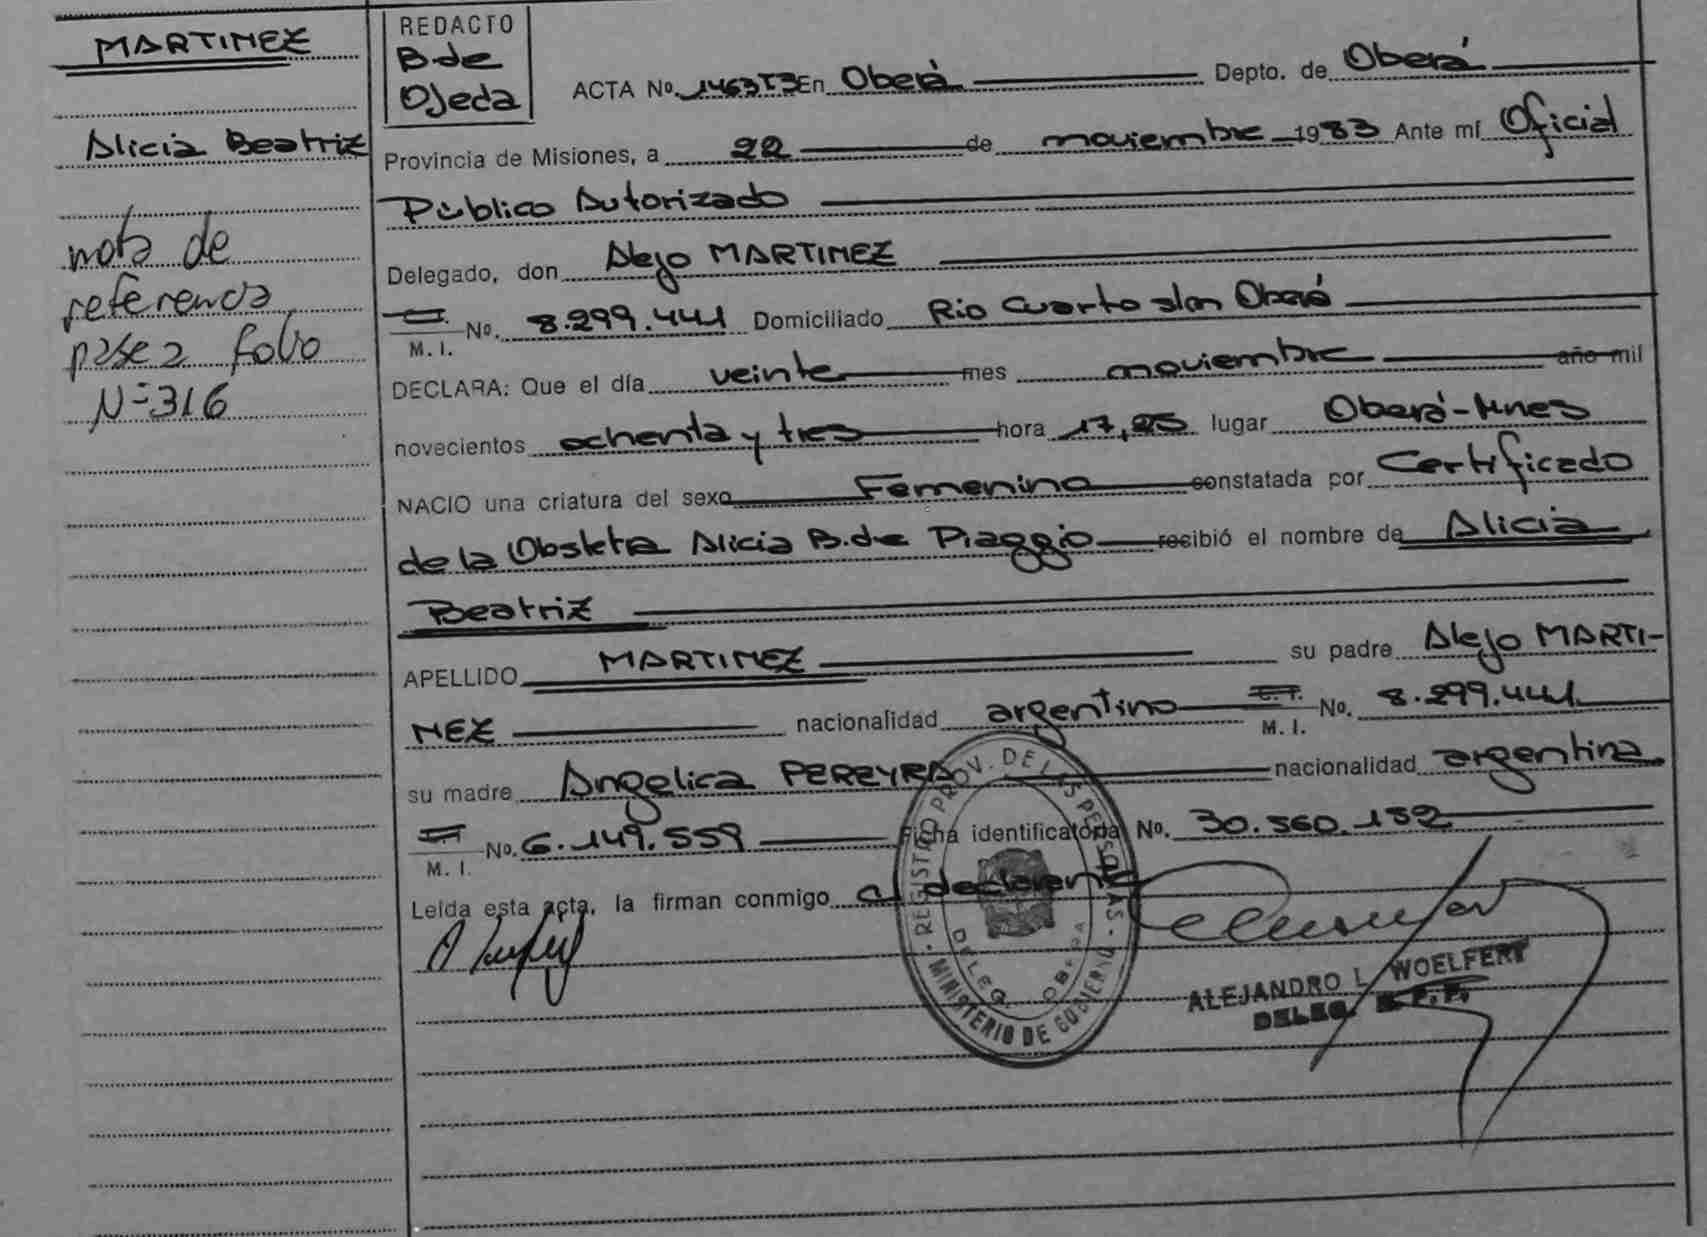 MARTINEZ
Alicia Beatriz
nota de
referencia
pase a folio
Nº 316
REDACTO
B. de
Ojeda
ACTA No. 1463 T3 En Oberá Depto. de Oberá
Provincia de Misiones, a 22 de noviembre 1983 Ante mí Oficial
Público Autorizado
Delegado, don Alejo MARTINEZ
M. I. No. 8.299.441 Domiciliado Rio Cuarto s/n Oberá
DECLARA: Que el día veinte mes noviembre año mil
novecientos ochenta y tres hora 17,25 lugar Oberá-Mnes
NACIO una criatura del sexo Femenino constatada por Certificado
de la Obstetra Alicia B. de Piaggio recibió el nombre de Alicia
Beatriz
APELLIDO MARTINEZ su padre Alejo MARTI-
NEZ nacionalidad argentino M. I. No. 8.299.441
su madre Angelica PEREYRA nacionalidad argentina
M. I. No. 6.149.559 Ficha identificatoria No. 30.560.152
Leída esta acta, la firman conmigo el declarante
REGISTRO PROV. DE LAS PERSONAS
DELEG. OBERA
MINISTERIO DE GOBIERNO
ALEJANDRO L. WOELFERT
DELEG.